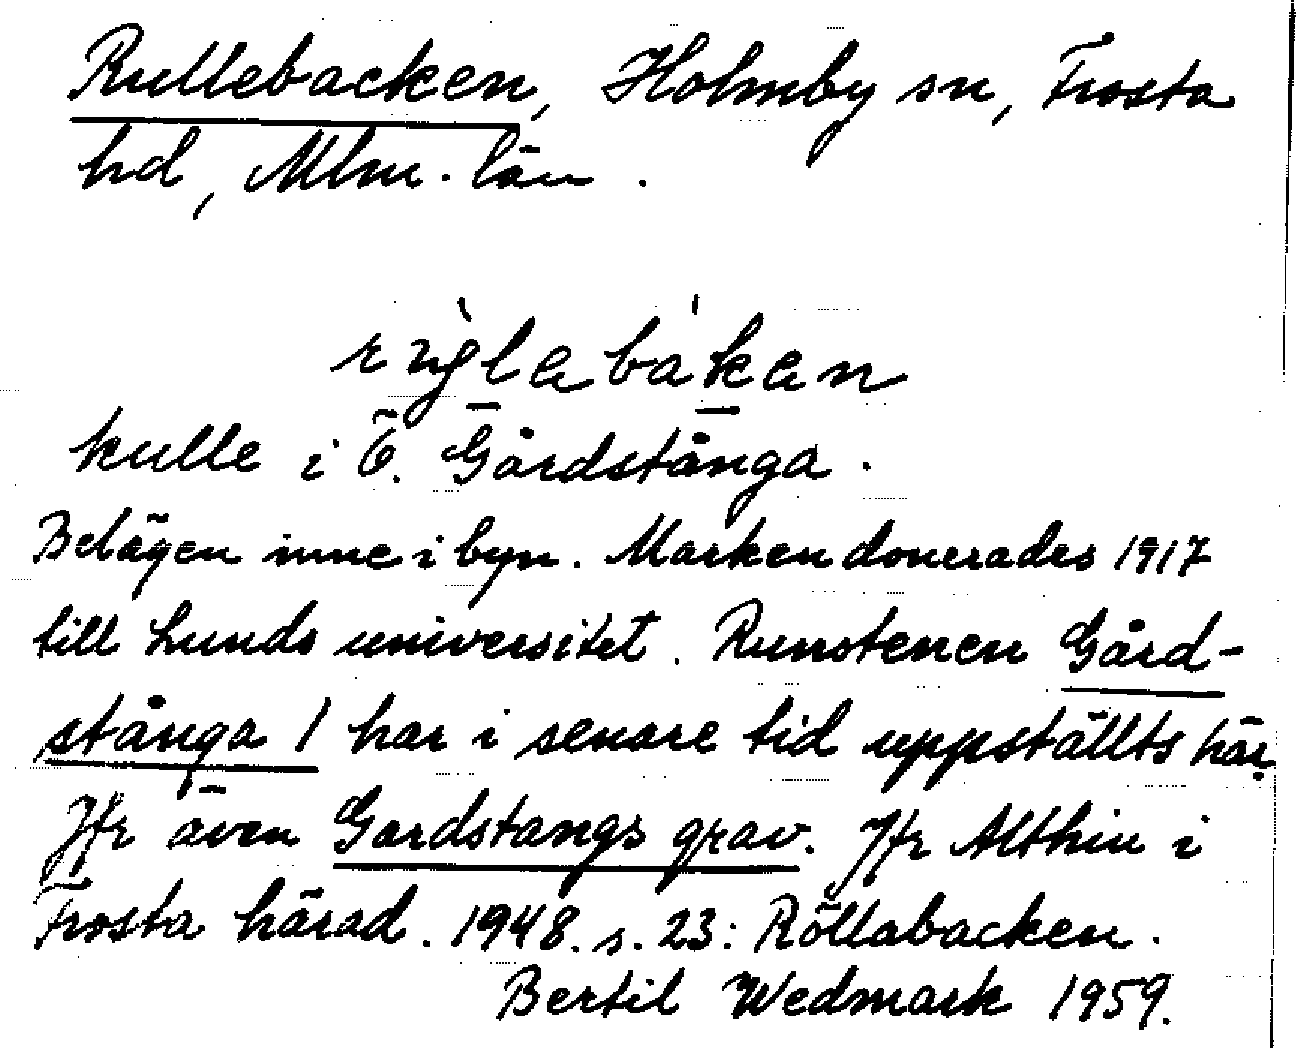 Rullebacken, Holmby sn, Frosta
hd, Mlm. län.
kulle i Ö. Gårdstånga.
Belägen inne i byn. Marken donerades 1917
till Lunds universitet. Runstenen Gård-
stånga 1 har i senare tid uppställts här.
Jfr även Gardstangs grav. Jfr Althin i
Frosta härad. 1948. s. 23: Röllabacken.
Bertil Wedmark 1959.